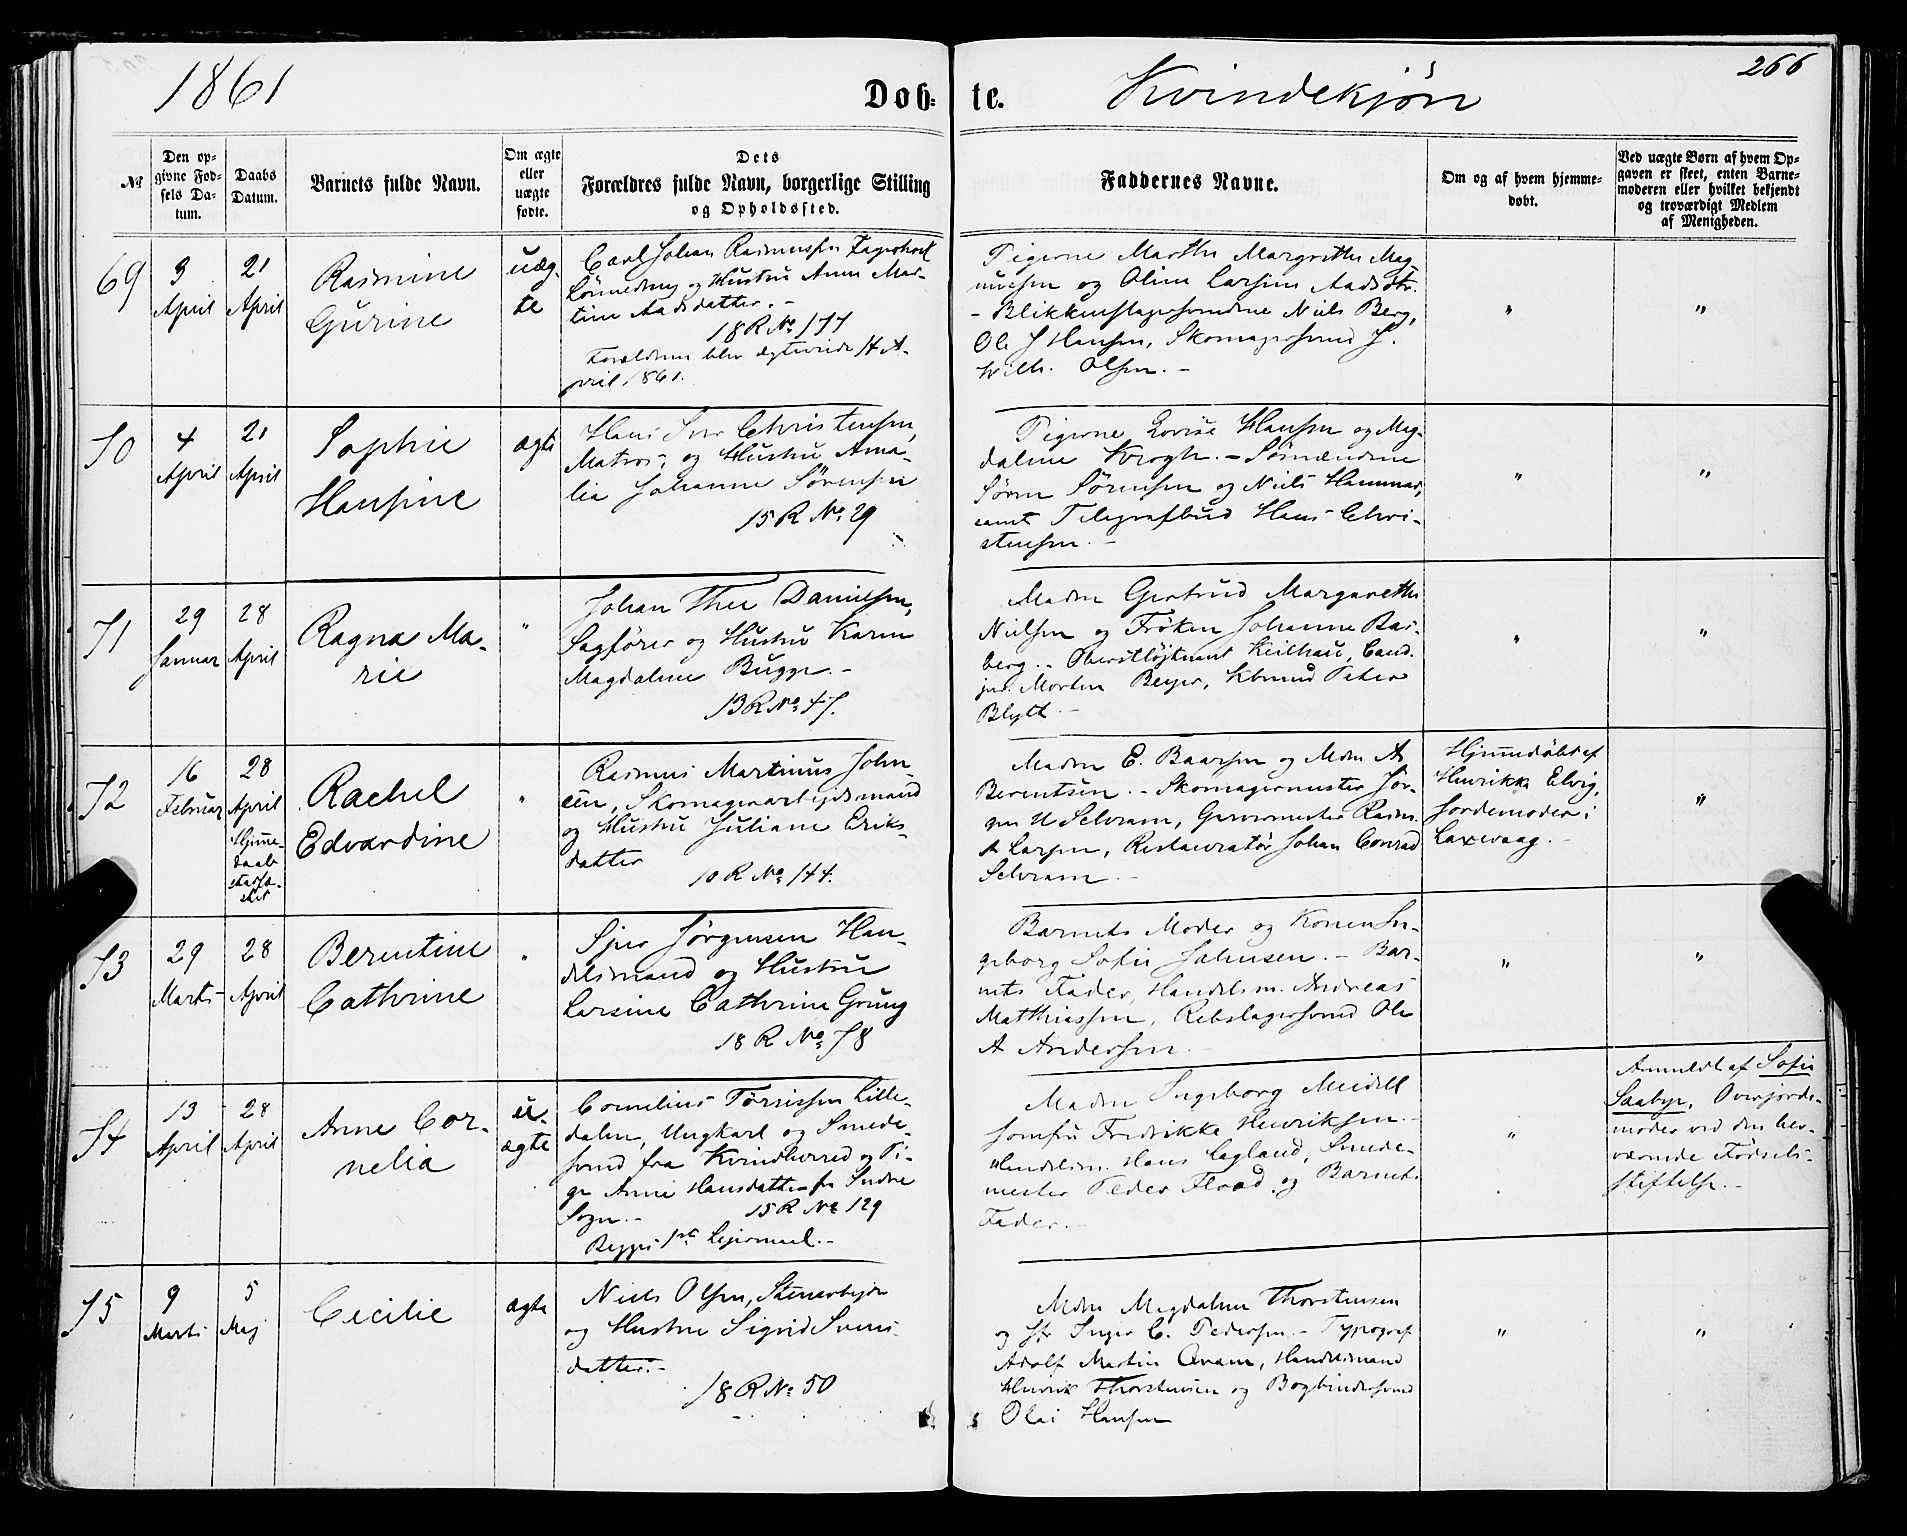 1861
Døb-te.
Kvindekjøn
266
№
Den op-
givne Fød-
sels Da-
tum.
Daabs
Datum.
Barnets fulde Navn.
Om ægte
eller
uægte
fødte.
Dets
Forældres fulde Navn, borgerlige Stilling
og Opholdssted.
Faddernes Navne.
Om og af hvem hjemme-
døbt.
Ved uægte Børn af hvem Op-
gaven er skeet, enten Barne-
moderen eller hvilket bekjendt
og troværdigt Medlem
af Menigheden.
69
3
April
21
April
Rasmine
Gurine
uæg-
te
Carl Johan Rasmussen
og Hustru Anne Mar-
tine Aadsdatter.-
18 R No 177
Forældrene blev ægteviede 14 A-
pril 1861.
Pigerne Marthe Margrethe Mag-
nussen og Oline Larsine Aadsdtr.
- Blikkenslagersvendene Niels Berg,
Ole J Hansen, Skomagersvend J.
Wilh. Olsen.-
"
"
70
4
April
21
April
Sophie
Hansine
ægte
Hans Iver Christensen,
Matros, og Hustru Ama-
lia Johanne Sørensen
15 R No 29
Pigerne Lovise Hansen og Mag-
dalene Krogh.- Sømændene
Søren Sørensen og Niels Hammer,
samt Telegrafbud Hans Chri-
stensen.-
"
"
71
29
Januar
28
April
Ragna Ma-
rie
"
Johan Thee Danielsen,
Sagfører og Hustru Karen
Magdalene Bugge.-
13 R No 47.
Madm Gertrud Margarethe
Nielsen og Frøken Johanne Bas-
berg.- Oberstløjtnant Keilhau, Cand.
jur. Morten Beyer, Kbmnd Peter
Blytt.-
"
"
72
16
Februar
28
April
Hjemme-
daab
stadfæ-
stet
Rachel
Edvardine
"
Rasmus Martinus John-
sen, Skomagerarbejdsmand
og Hustru Juliane Eriks-
datter
10 R No 144.
Madm E. Baarsen og Mdm A
Berentsen.- Skomagermester Jør-
gen N Selvram, Garvermester Rasm.
A Larsen, Restauratør Johan Conrad
Selvram.-
Hjemmedøbt af
Henrikke Elvig,
Jordemoder i
Laxevaag.-
"
73
29
Marts
28
April
Berentine
Cathrine
"
Sjur Jørgensen Han-
delsmand og Hustru
Larsine Cathrine Grung
18 R No 78
Barnets Moder og Konen In-
geborg Sofie Johnsen.- Bar-
nets Fader, Handelsm. Andreas
Matthiassen, Rebslagersvend Ole
A Andersen.-
"
"
74
13
April
28
April
Anne Cor-
nelia
u-
ægte
Cornelius Tørrissen Lille-
dalen, Ungkarl og Smede-
svend fra Kvindherred og Pi-
ge Anne Hansdatter fr Indre
Sogn.-
15 R No 129
Begges 1ste Lejermaal.-
Madm Ingeborg Meidell
Jomfru Fredrikke Henriksen.-
Handelsm. Hans Lagland, Smede-
mester Peder Flood og Barnets
Fader.-
"
Anmeldt af Sofie
Saabye, Overjorde-
moder ved den her-
værende Fødsels-
stiftelse.-
75
9
Marts
5
Maj
Cecilie
ægte
Niels Olsen, Stenarbejder
og Hustru Sigrid Svens-
datter.-
18 R No 50
Mdm Magdalene Thorstensen
og Jfr Inger C. Pedersen.- Typograf
Adolf Martin Qvam, Handelsmand
Henrik Thorstensen og Bogbindersvend
Olai Hansen
"
"